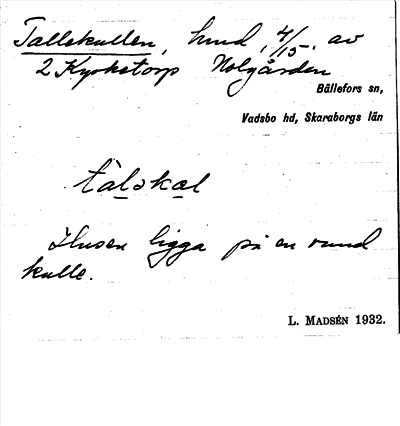 Tallekullen, hmd, 4/15, av
2 Kyrketorp Nolgården
Bällefors sn,
Vadsbo hd, Skaraborgs län
tàlskal
Husen ligga på en rund
kulle.
L. MADSÉN 1932.